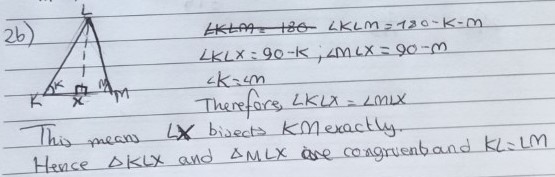 2b)
L
K
K
X
M
M
∠KLM = 180 ∠KLM = 180-K-M
∠KLX = 90-K ; ∠MLX = 90-M
∠K = ∠M
Therefore, ∠KLX = ∠MLX
This means LX bisects KM exactly.
Hence △KLX and △MLX are congruent and KL = LM